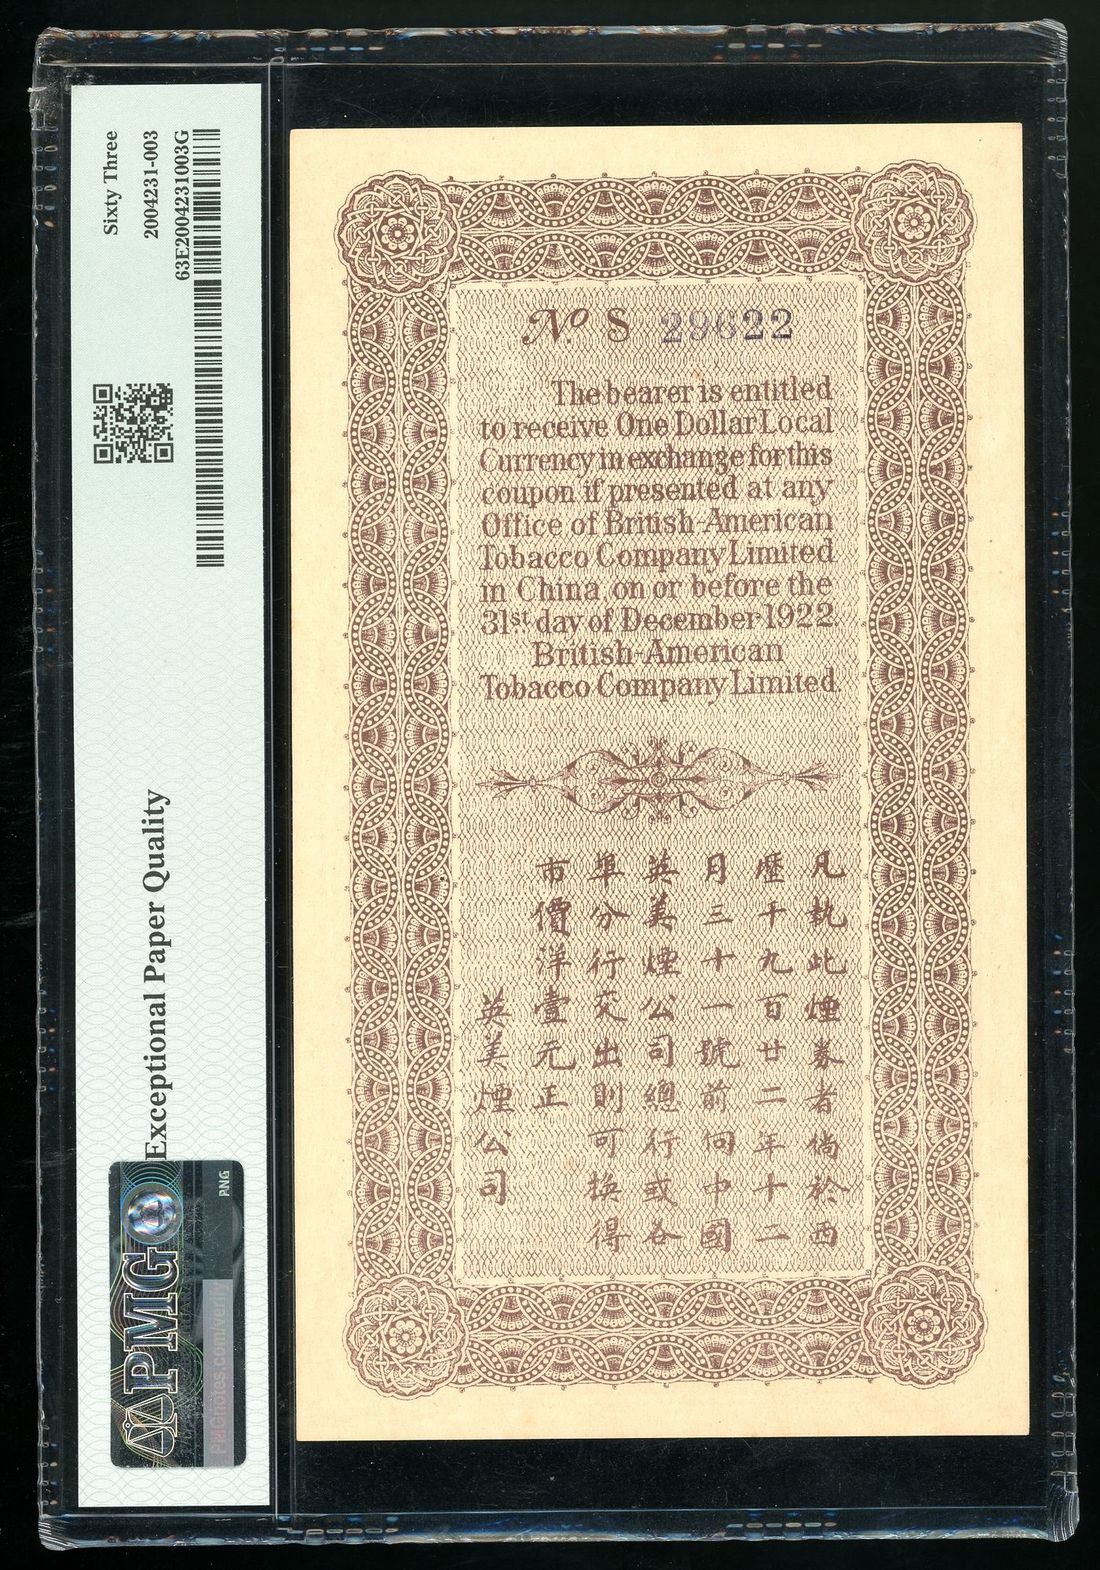 Sixty Three
2004231-003
63E2004231003G
Exceptional Paper Quality
PMG
PNG
PMGnotes.com/verify
No. S 29622
The bearer is entitled
to receive One Dollar Local
Currency in exchange for this
coupon if presented at any
Office of British-American
Tobacco Company Limited
in China on or before the
31st day of December 1922
British-American
Tobacco Company Limited.
凡執此煙券者倘於西
歷千九百廿二年十二
月三十一號前向中國
英美煙公司總行或各
埠分行交出則可換得
市價洋壹元正
英美煙公司